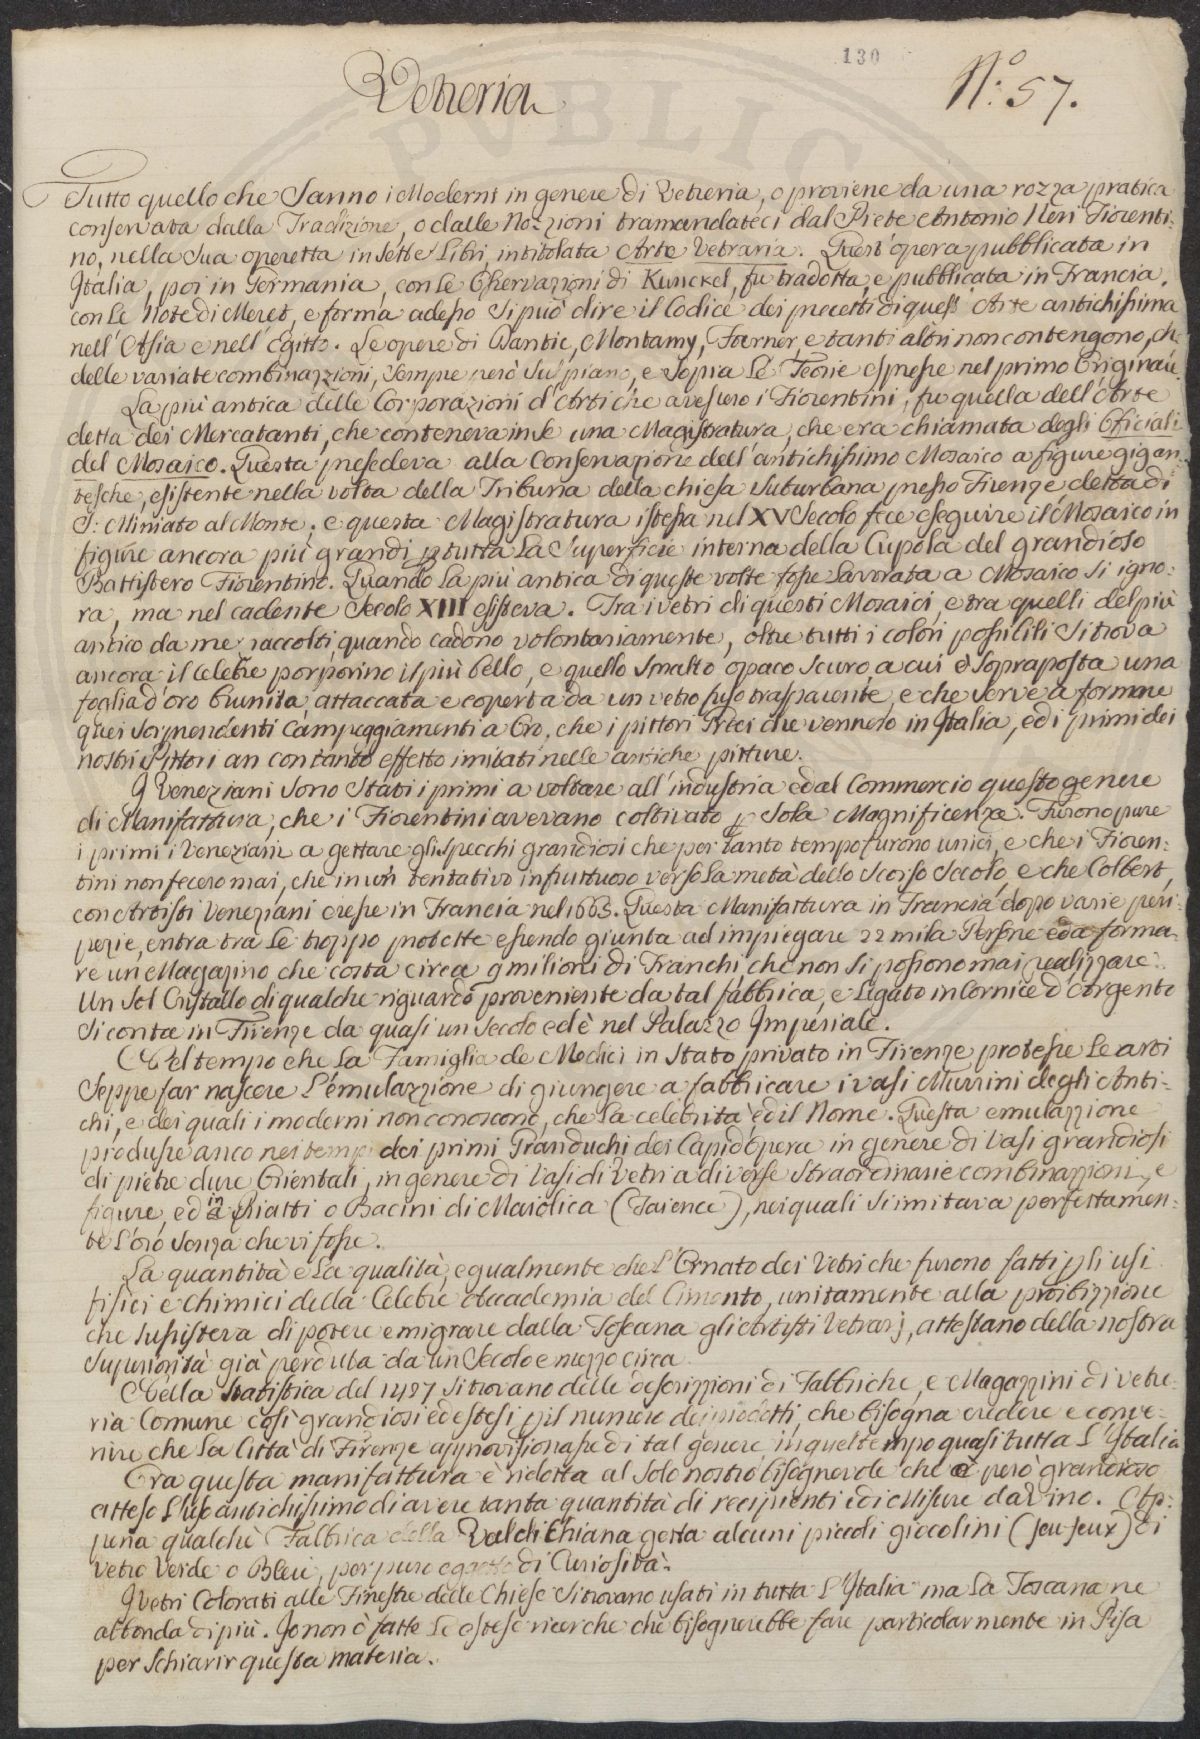 130
Vetreria
N.º 57.
Tutto quello che Sanno i Moderni in genere di Vetreria, o proviene da una rozza pratica
conservata dalla Tradizione, o dalle Nozzioni tramandateci dal Prete Antonio Neri Fiorenti-
no, nella Sua operetta in Sette Libri, intitolata Arte Vetraria. Quest'opera pubblicata in
Italia, poi in Germania, con le Osservazzioni di Kunckel, fu tradotta, e pubblicata in Francia,
con Le Note di Meret, e forma adesso si può dire il Codice dei precetti di quest' Arte antichissima
nell'Asia e nell'Egitto. Le opere di Dantic, Montamy, Fourner, e tanti altri non contengono, che
delle variate combinazzioni, Sempre però Sul piano, e Sopra Le Teorie espresse nel primo Originale.
La più antica delle Corporazioni d'Arti che avessero i Fiorentini, fu quella dell'Arte
detta dei Mercatanti, che conteneva in se una Magistratura, che era chiamata degli Oficiali
del Mosaico. Questa presedeva alla Conservazione dell'antichissimo Mosaico a figure gigan-
tesche, esistente nella volta della Tribuna della chiesa Suburbana presso Firenze detta di
S: Miniato al Monte; e questa Magistratura istessa nel XV Secolo fece eseguire il Mosaico in
figure ancora più grandi p tutta La Superficie interna della Cupola del grandioso
Battistero Fiorentino. Quando La più antica di queste volte fosse Lavorata a Mosaico Si igno-
ra, ma nel cadente Secolo XIII esisteva. Tra i vetri di questi Mosaici, e tra quelli del più
antico da me raccolti, quando cadono volontariamente, oltre tutti i colori possibili Si trova
ancora il Celebre porporino il più bello, e quello Smalto opaco Scuro, a cui è Sopraposta una
foglia d'oro brunita, attaccata e coperta da un vetro fuso trasparente, e che Serve a formare
quei Sorprendenti Campeggiamenti a Oro, che i pittori Greci che vennero in Italia, ed i primi dei
nostri Pittori an con tanto effetto imitati nelle antiche pitture.
I Veneziani Sono Stati i primi a voltare all'industria ed al Commercio questo genere
di Manifattura, che i Fiorentini avevano coltivato p Sola Magnificenza. Furono pure
i primi i Veneziani a gettare gli Specchi grandiosi che per tanto tempo furono unici, e che i Fioren-
tini non fecero mai, che in un tentativo infruttuoso verso La metà dello Scorso Secolo, e che Colbert,
con Artisti Veneziani eresse in Francia nel 1663. Questa Manifattura in Francia dopo varie peri-
pezie, entra tra Le troppo protette essendo giunta ad impiegare 22 mila Persone ed a forma-
re un Magazino che costa circa 9 milioni di Franchi, che non Si possono mai realizzare.
Un Sol Cristallo di qualche riguardo proveniente da tal fabbrica, e Legato in Cornice d'Argento
Si conta in Firenze da quasi un Secolo ed è nel Palazzo Imperiale.
Nel tempo che La Famiglia de Medici in Stato privato in Firenze protesse Le arti
Seppe far nascere L'emulazzione di giungere a fabbricare i vasi Murrini degli Anti-
chi, e dei quali i moderni non conoscono, che La celebrità ed il Nome. Questa emulazzione
produsse anco nei tempi dei primi Granduchi dei Capi d'Opera in genere di Vasi grandiosi
di pietre dure Orientali, in genere di Vasi di Vetri a diverse Straordinarie combinazzioni, e
figure, ed in Piatti o Bacini di Maiolica (Faience), nei quali Si imitava perfettamen-
te L'oro Senza che vi fosse.
La quantità e La qualità, egualmente che L'Ornato dei Vetri che furono fatti p gli usi
fisici e Chimici della Celebre Accademia del Cimento, unitamente alla proibizzione
che Sussisteva di potere emigrare dalla Toscana gli Artisti Vetrarj, attestano della nostra
Superiorità già perduta da un Secolo e mezzo circa
Nella Statistica del 1427 Si trovano delle descrizzioni di Fabbriche, e Magazzini di vetre-
ria Comune così grandiosi ed estesi p il numero dei prodotti, che bisogna credere e conve-
nire che La Città di Firenze approvisionasse di tal genere in quel tempo quasi tutta L'Italia
Ora questa manifattura è ridotta al Solo nostro bisognevole che è però grandioso
atteso L'uso antichissimo di avere tanta quantità di recipienti e di Misure dal vino. Ap-
pena qualche Fabbrica della Val di Chiana getta alcuni piccoli giocolini (Jeu Jeux) di
Vetro Verde o Bleu, per puro oggetto di Curiosità.
I Vetri Colorati alle Finestre delle Chiese Si trovano usati in tutta L'Italia ma La Toscana ne
abbonda di più. Io non ò fatte Le estese ricerche che bisognerebbe fare particolarmente in Pisa
per Schiarir questa materia.